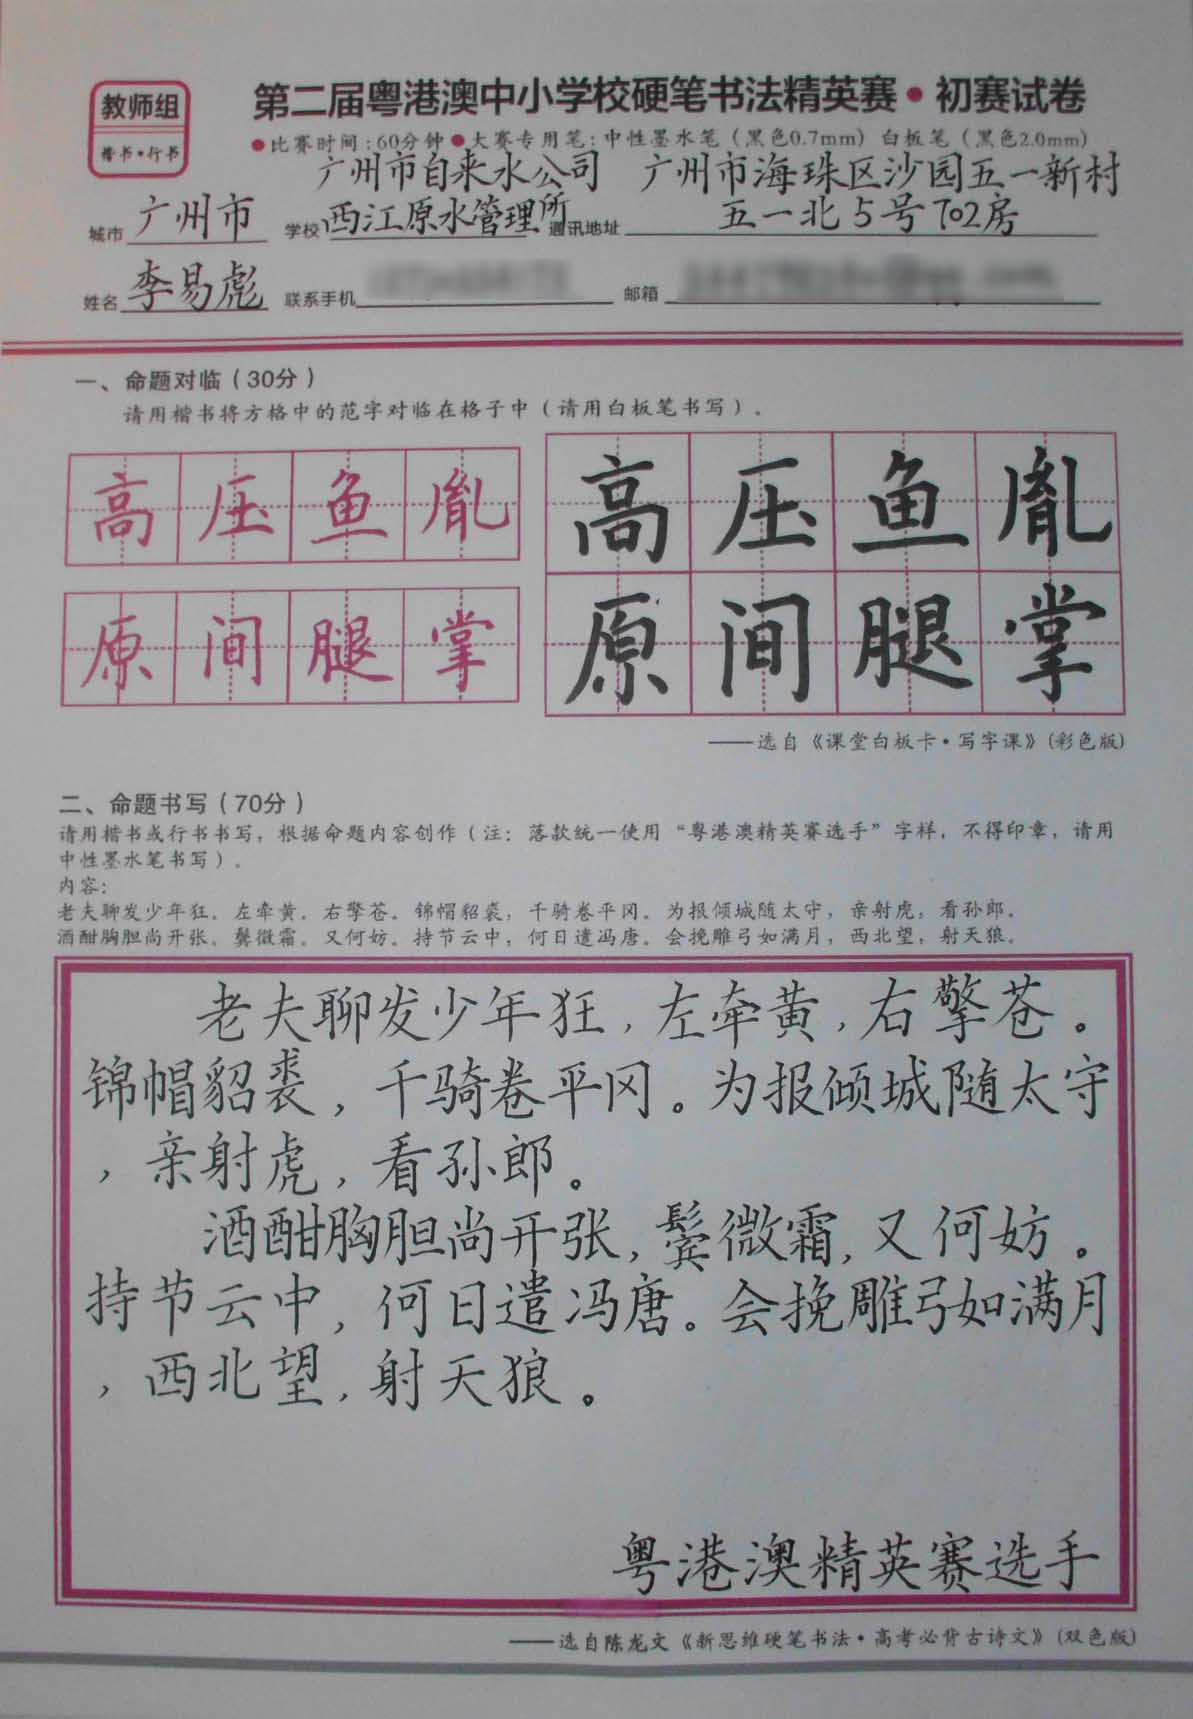 教师组
楷书·行书
第二届粤港澳中小学校硬笔书法精英赛·初赛试卷
●比赛时间:60分钟●大赛专用笔:中性墨水笔（黑色0.7mm）白板笔（黑色2.0mm）
广州市自来水公司 广州市海珠区沙园五一新村
城市 广州市 学校 西江原水管理所 通讯地址 五一北5号702房
姓名 李易彪 联系手机 邮箱
一、命题对临（30分）
请用楷书将方格中的范字对临在格子中（请用白板笔书写）。
高压鱼胤 高压鱼胤
原间腿掌 原间腿掌
——选自《课堂白板卡·写字课》(彩色版)
二、命题书写（70分）
请用楷书或行书书写，根据命题内容创作（注：落款统一使用“粤港澳精英赛选手”字样，不得印章，请用
中性墨水笔书写）。
内容：
老夫聊发少年狂。左牵黄。右擎苍。锦帽貂裘，千骑卷平冈。为报倾城随太守，亲射虎，看孙郎。
酒酣胸胆尚开张。鬓微霜。又何妨。持节云中，何日遣冯唐。会挽雕弓如满月，西北望，射天狼。
老夫聊发少年狂，左牵黄，右擎苍。
锦帽貂裘，千骑卷平冈。为报倾城随太守
，亲射虎，看孙郎。
酒酣胸胆尚开张，鬓微霜，又何妨。
持节云中，何日遣冯唐。会挽雕弓如满月
，西北望，射天狼。
粤港澳精英赛选手
——选自陈龙文《新思维硬笔书法·高考必背古诗文》(双色版)